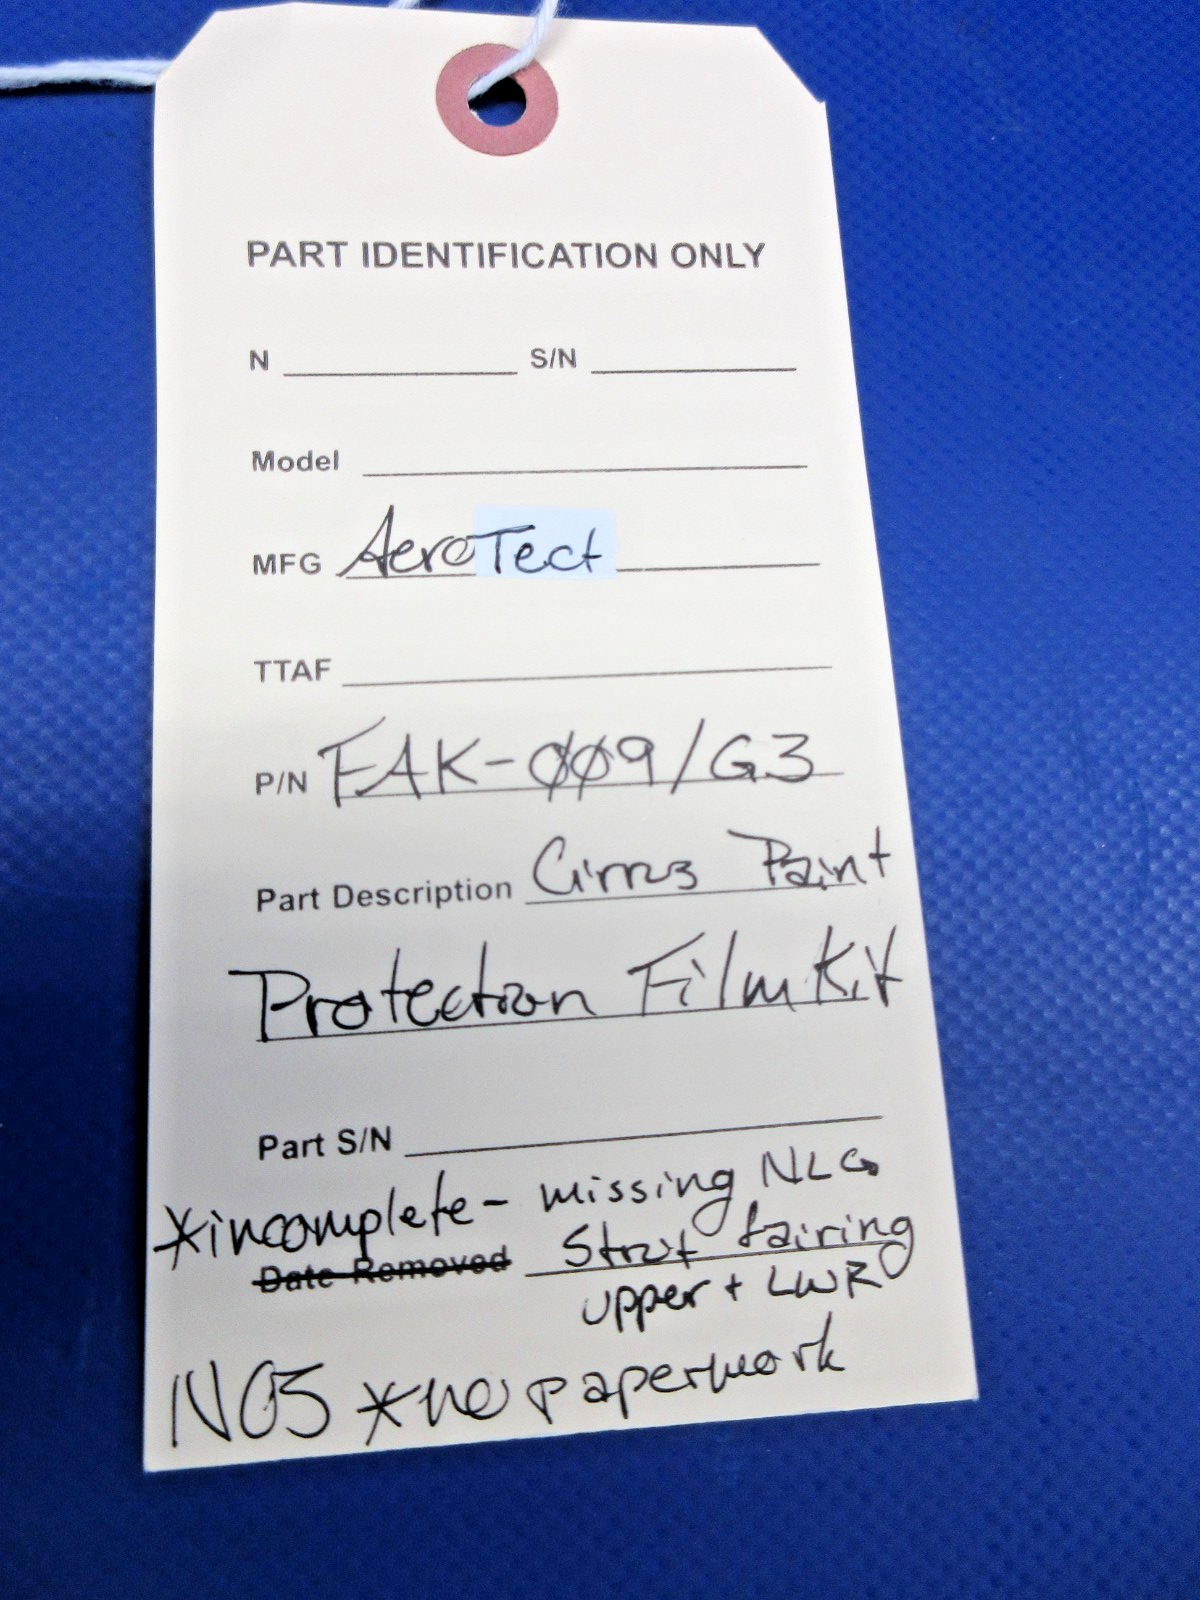 PART IDENTIFICATION ONLY
N S/N
Model
MFG AeroTect
TTAF
P/N FAK-009/G3
Part Description Cirrus Paint
Protection Film Kit
Part S/N
*incomplete - missing NLG
Date Removed Strut fairing
upper + LWR
NOS *no paperwork